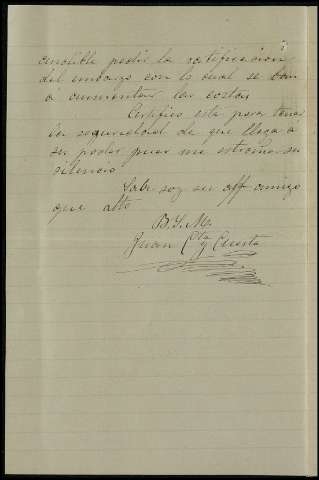 pedir la ratificacion
del embargo con lo cual se van
á aumentar las costas
Certifico esta para tener
la seguridad de que llega á
su poder pues me estraña su
silencio
Sabe soy su aff amigo
que atto
B. S. M.
Juan C y Cuesta